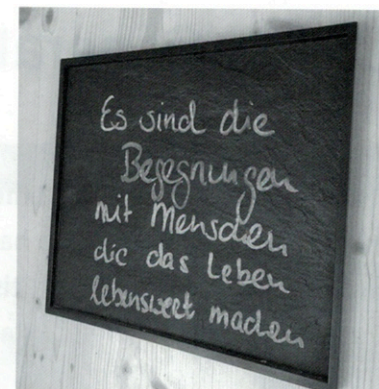 Es sind die
Begegnungen
mit Menschen
die das Leben
lebenswert machen